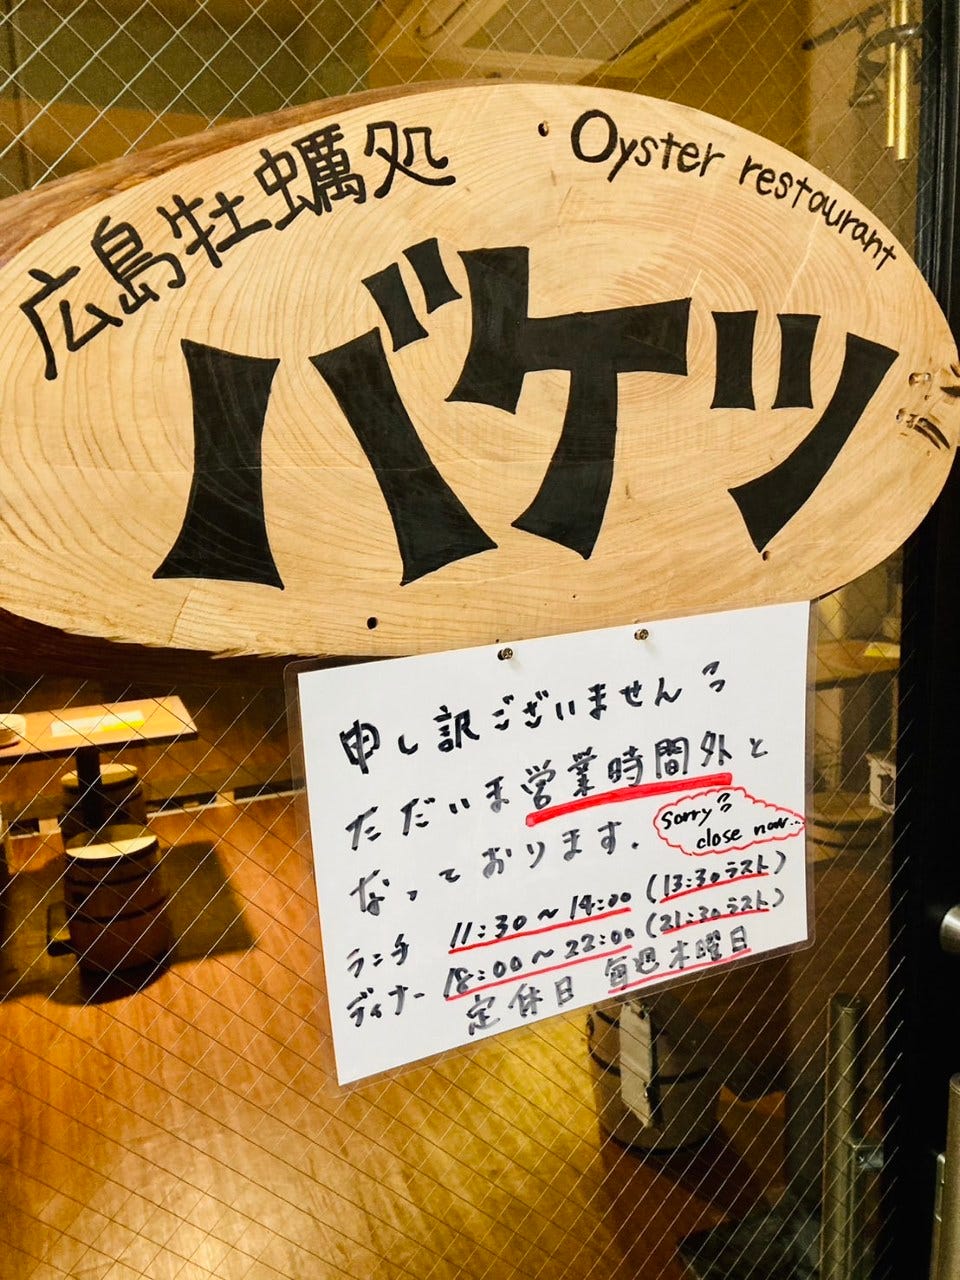 広島牡蠣処
Oyster restaurant
バケツ
申し訳ございません
ただいま営業時間外と
なっております.
Sorry
close now...
ランチ 11:30〜14:00 (13:30ラスト)
ディナー 18:00〜22:00 (21:30ラスト)
定休日 毎週木曜日